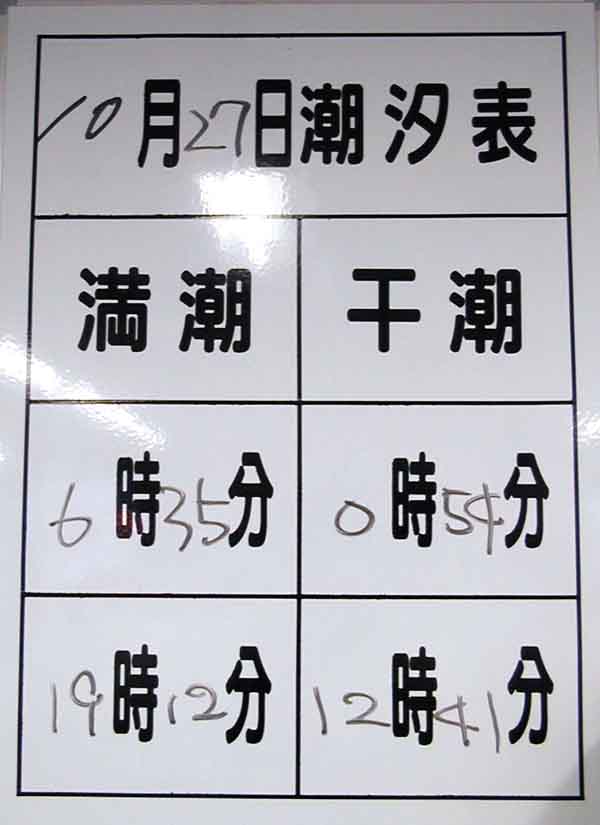 10月27日潮汐表
満潮 干潮
6時35分 0時54分
19時12分 12時41分